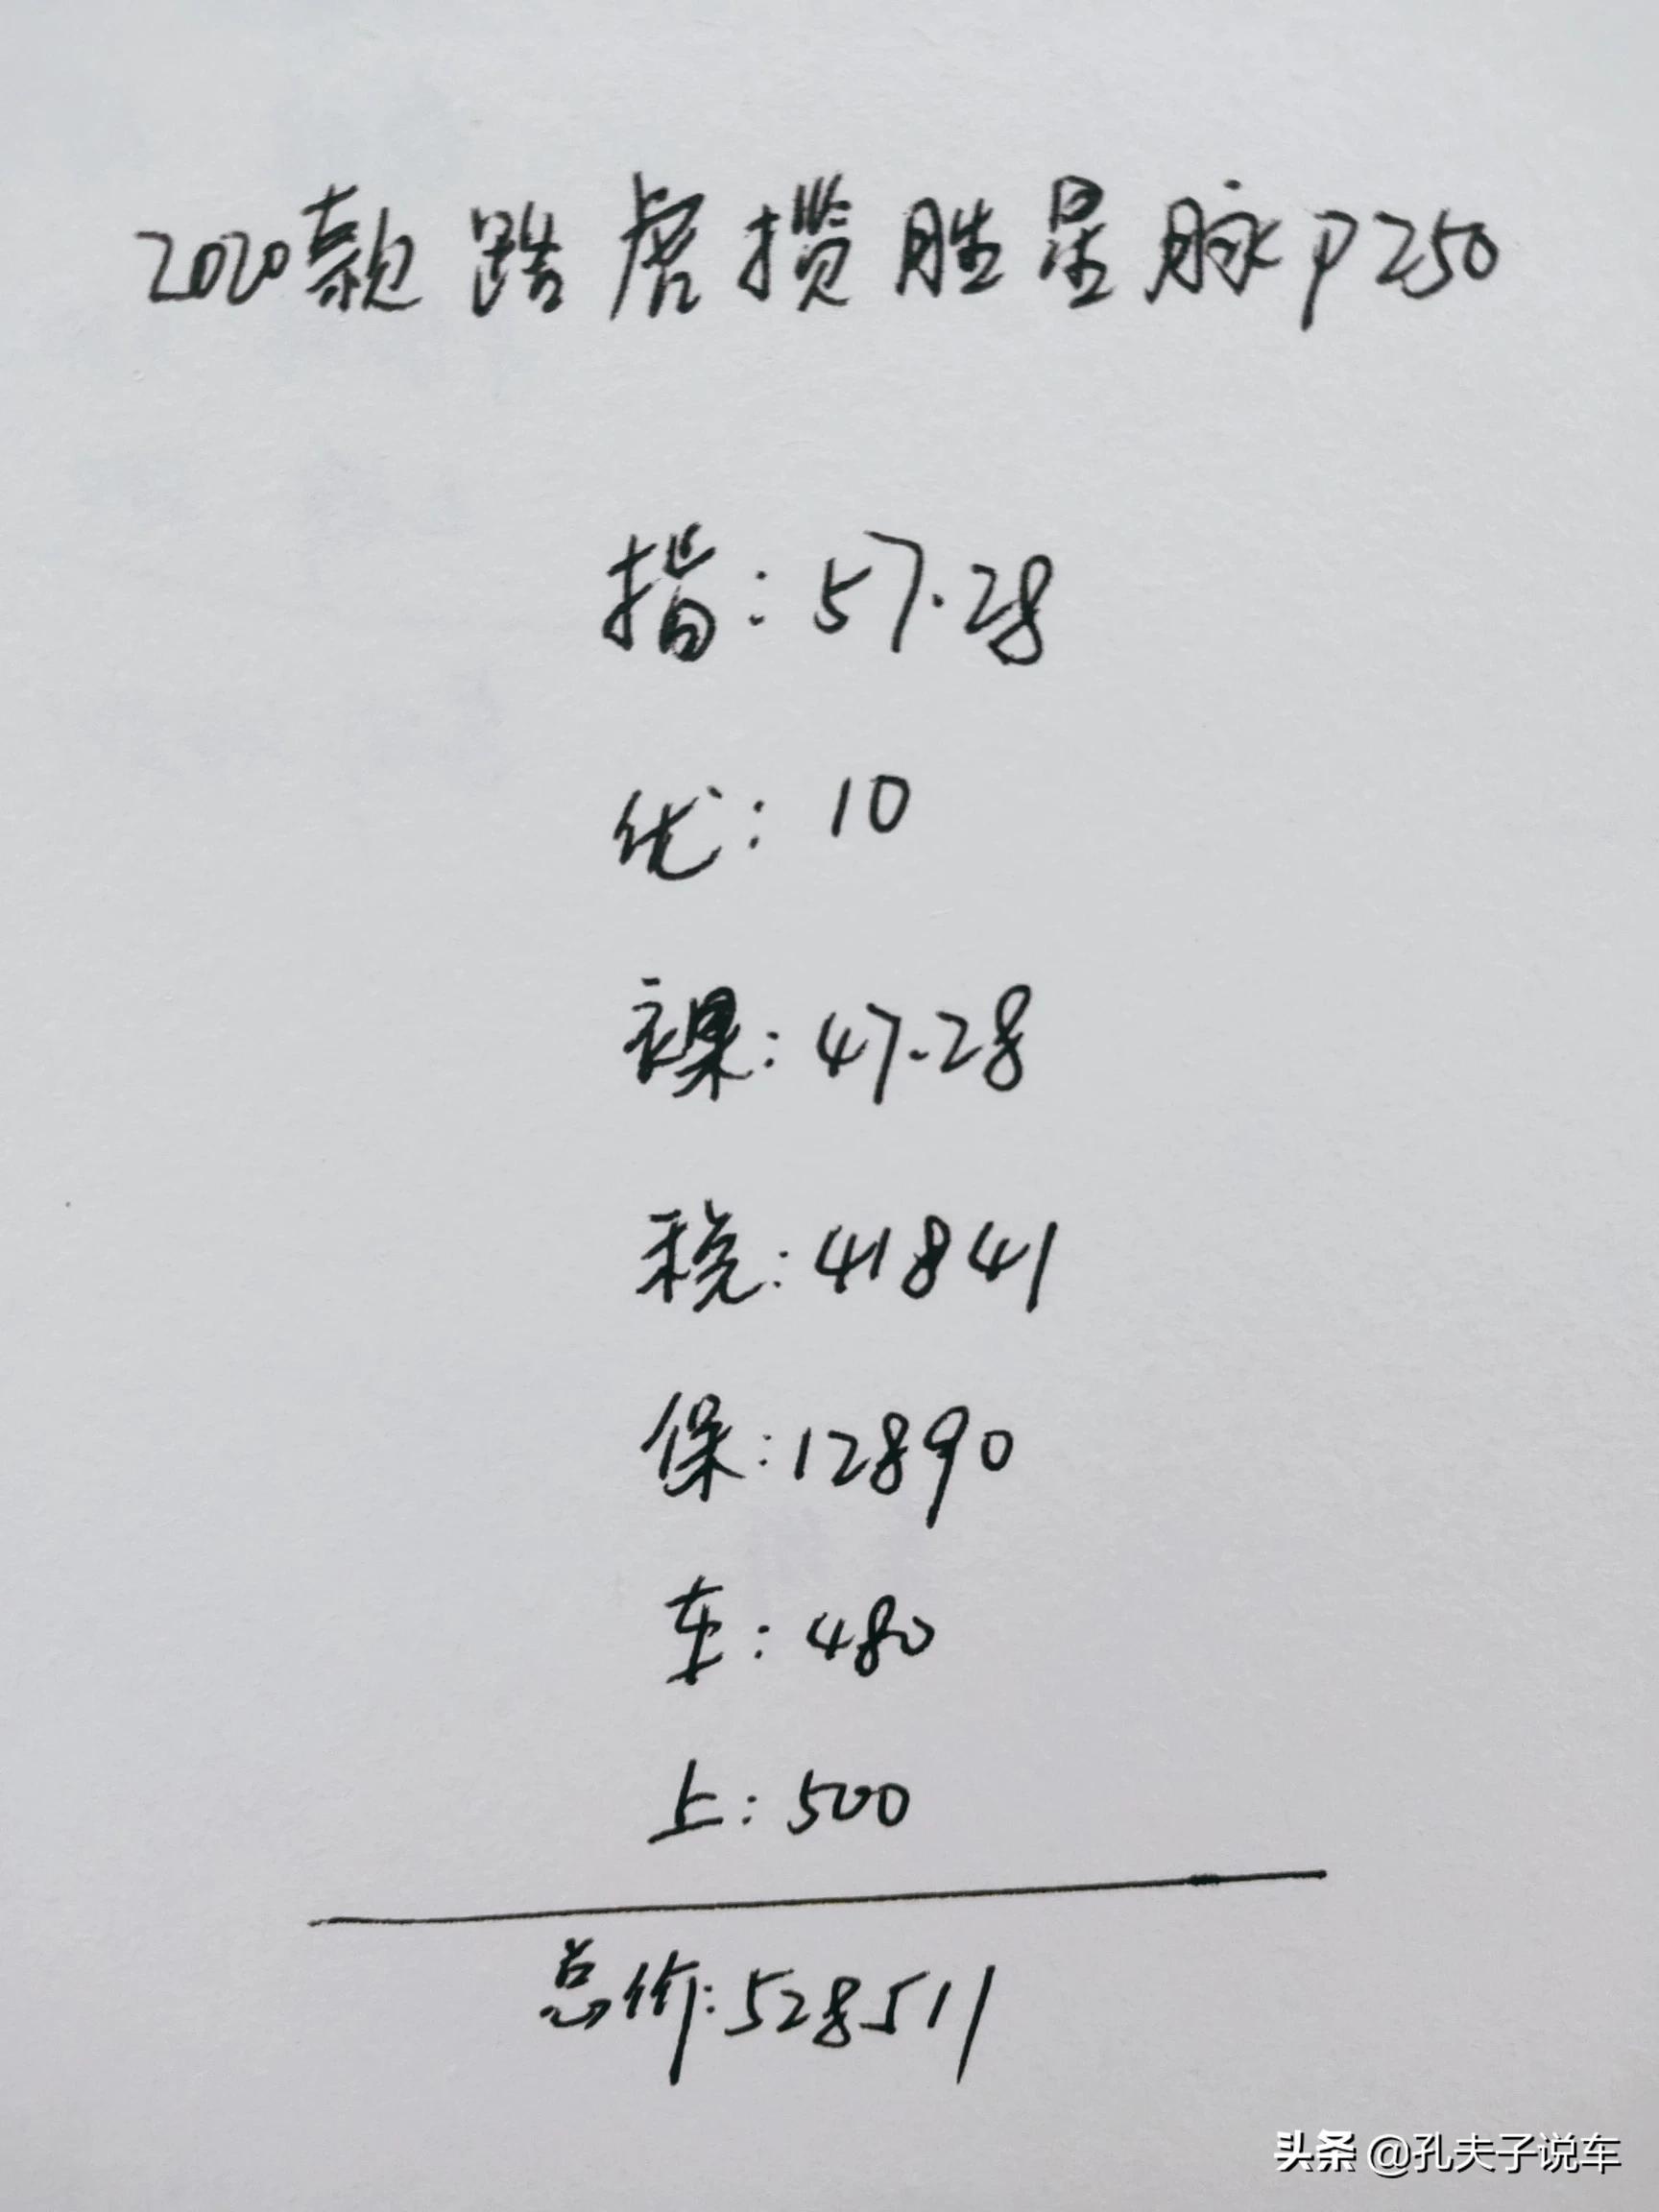 2020款路虎揽胜星脉P250
指:57.28
优:10
裸:47.28
税:41841
保:12890
车:480
上:500
总价:528511
头条 @孔夫子说车